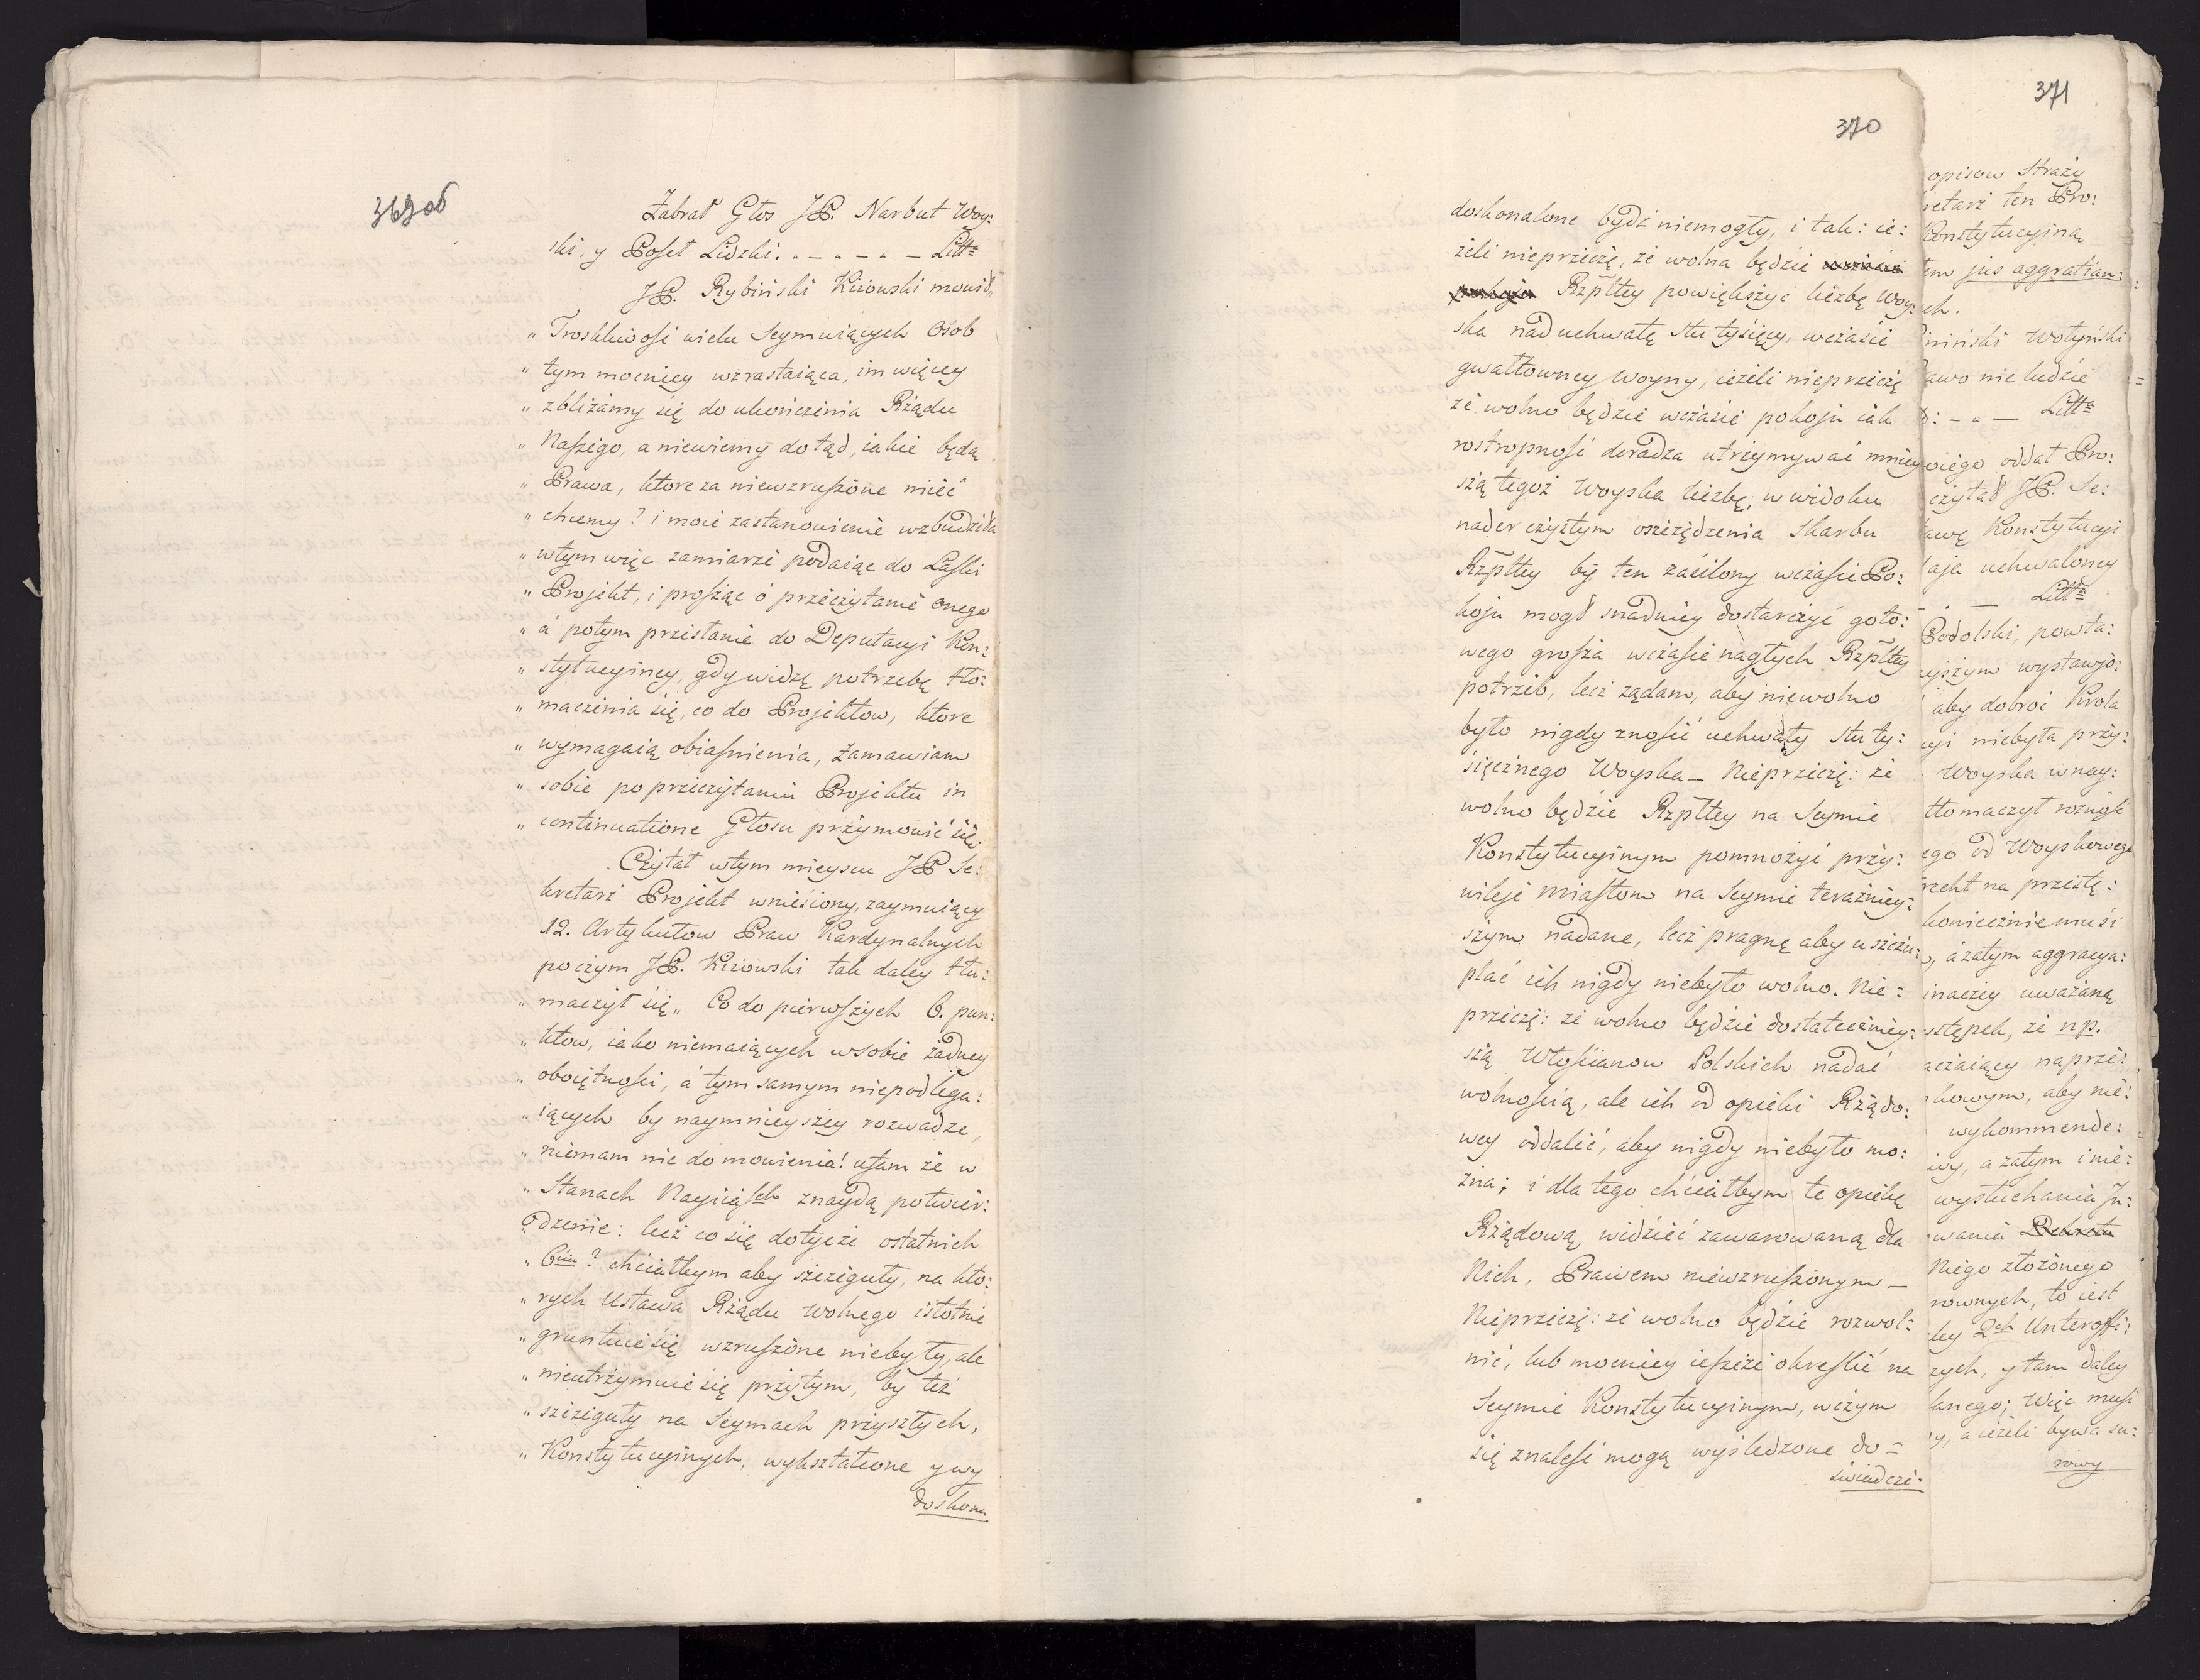 369об
Zabrał Głos JP. Narbut Woy:
ski, y Poseł Lidzki. . – . – . – Litt:
JP. Rybiński Kiiowski mowił,
„ Troskliwość wielu Seymuiących Osob
„ tym mocniey wzrastaiąca, im więcey
„ zbliżamy się do ukończenia Rządu
„ Naszego, a niewiemy do tąd, iakie będą
„ Prawa, ktore za niewzruszone mieć
„ chcemy? i moie zastanowienie wzbudziła
„ w tym więc zamiarze podaiąc do Laski
„ Projekt, i prosząc o przeczytanie onego
„ á potym przesłanie do Deputacyi Kon:
„ stytucyiney, gdy widzę potrzebę tło:
„ maczenia się, co do Projektow, ktore
„ wymagaią obiaśnienia, zamawiam
„ sobie po przeczytaniu Projektu in
„ continuatione Głosu przymowić się
Czytał w tym mieyscu JP Se:
kretarz Projekt wniesiony, zaymuiący
12. Artykułow Praw Kardynalnych
poczym JP. Kiiowski tak daley tłu:
„ maczył się „ Co do pierwszych 6. pun:
„ ktow, iako niemaiących w sobie żadney
„ oboiętności, á tym samym niepodlega:
„ iących by naymnieyszey rozwadze,
„ niemam nic do mowienia! ufam że w
„ Stanach Nayiaśch znaydą potwier:
„ dzenie: lecz co się dotycze ostatnich
„ 6ciu? chciałbym aby szczeguły, na kto:
„ rych Ustawa Rządu wolnego istotnie
„ gruntuie się wzruszone niebyły, ale
„ nieutrzymuie się przytym, by też
„ szczeguły na Seymach przyszłych,
„ Konstytucyinych, wykształcone y wy
doskona
370
doskonalone bydź niemogły, i tak: ie:
żeli nieprzeczę, że wolna będzie
Rzpltey powiększyć liczbę Woy:
ska nad uchwałę stu tysięcy, w czasie
gwałtowney Woyny, ieżeli nieprzeczę
że wolno będzie w czasie pokoju iak
rostropność doradza utrzymywać mniey
szą tegoż Woyska liczbę, w widoku
nader czystym oszczędzenia Skarbu
Rzpltey by ten zasilony w czasie Po:
koju mogł snadniey dostarczyć goto:
wego grosza w czasie nagłych Rzpltey
potrzeb, lecz żądam, aby niewolno
było nigdy znosić uchwały stu ty:
sięcznego Woyska – Nieprzeczę: że
wolno będzie Rzpltey na Seymie
Konstytucyinym pomnożyć przy:
wileje Miastom na Seymie teraźniey:
szym nadane, lecz pragnę aby uszczu:
plać ich nigdy niebyło wolno. Nie:
przeczę: że wolno będzie dostatecznie:
szą Włościanow Polskich nadać
wolnością, ale ich od opieki Rządo:
wey oddalić, aby nigdy niebyło mo:
żna; i dla tego chciałbym te opiekę
Rządową, widzieć zawarowaną dla
Nich, Prawem niewzruszonym –
Nieprzeczę: że wolno będzie rozwol:
nić, lub mocniey ieszcze okreslić na
Seymie Konstytucyinym, w czym
się znaleść mogą wyśledzone do=
świadcze:
371
opisow Straży
retarz ten Pro:
Konstytucyina
jus aggratian:
ch.
iniński Wołyński
awo nie ludzie
: – „ – Litt:
oiego oddał Pro:
czytał JP. Se:
awę Konstytucyi
aja uchwaloney
. – Litt:
Podolski, powta:
yższym wystawio:
aby dobroć Krola
cyi niebyła przy:
Woyska w nay:
tłomaczył rożność
ego od Woyskowego
recht na przestę:
koniecznie musi
, á zatym aggracya:
inaczey uważaną
stępek, że np.
aczaiący naprze:
kowym, aby nie:
wykommende:
wy, a zatym i nie:
wysłuchania Ju:
wania Dekretu
Niego złożonego
rownych, to iest
ley 2ch Unteroffi:
zych, y tam daley
lanego; Więc musi
y, a ieżeli bywa su:
rowy